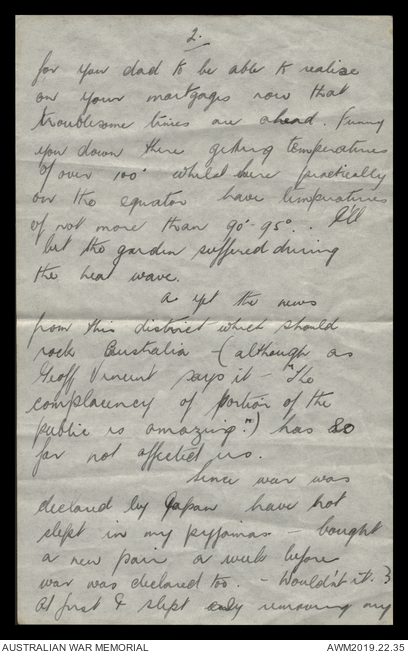 2.
for your dad to be able to realise
on your mortgages now that
troublesome times are ahead. Funny
you down there getting temperatures
of over 100° whilst here practically
on the equator have temperatures
of not more than 90°-95°.. I'll
bet the garden suffered during
the heat wave.
As yet the news
from this district which should
rock Australia - (although as
Geoff Vincent says it - "The
complacency of portion of the
public is amazing".) has so
far not affected us.
Since war was
declared by Japan have not
slept in my pyjamas - bought
a new pair a week before
war was declared too. - Wouldn't it.?
At first I slept only removing my
AUSTRALIAN WAR MEMORIAL
AWM2019.22.35